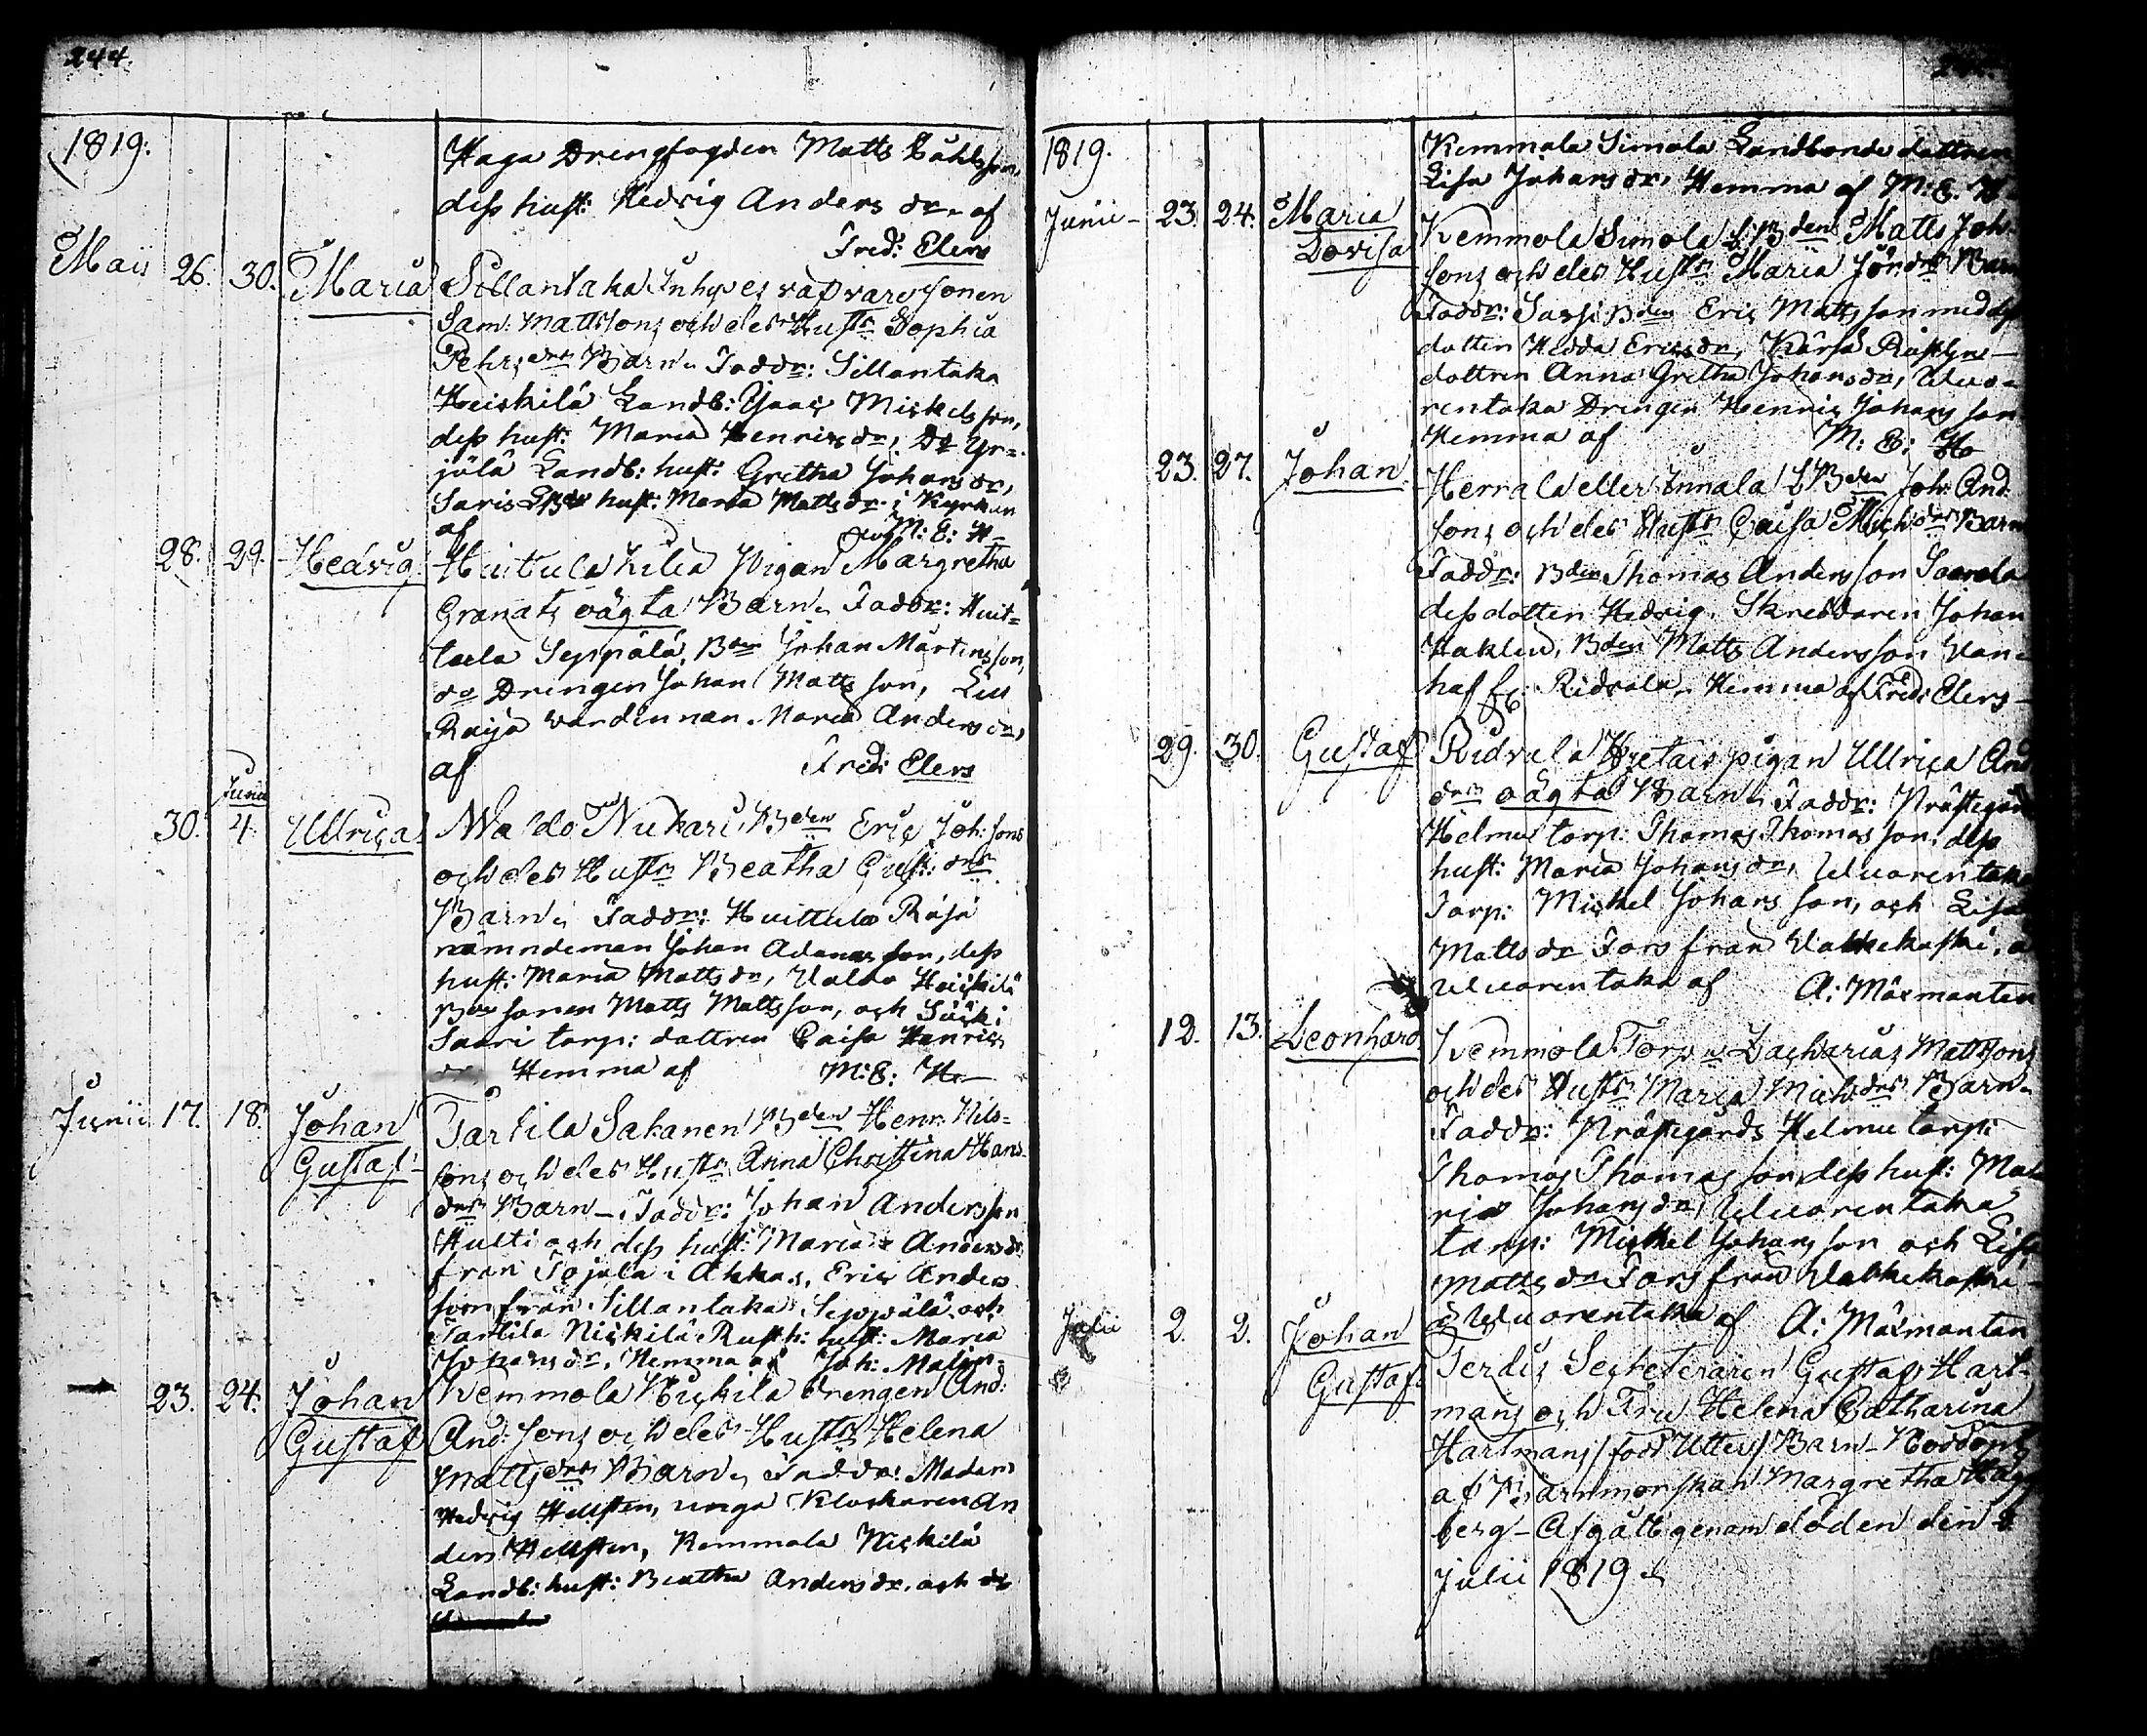 244.
1819.
Haga Drengfogden Matts
dess hust: Hedvig Anders dr. af
Fred: Elers
Maii 26. 30. Maria Sillantaka sonen
Sam: Mattssons och des Hustr Sophia
Pehrs dotrs Barn. Faddr: Sillantaka
Heickilä Landb: Isaac Mickelsson,
dess hust: Maria Henrics dr, Do Yr=
jälä Landb: hust: Gretha Johans dr,
Saris hust: Maria Matts dr. i Kyrkan
af M: E: H
28. 29. Hedvig Huitula Kilia Pigan Margretha
Granats oägta Barn. Faddr: Huit=
tula Seppälä, Bden Johan Mårtensson,
do Drengen Johan Mattsson,
Maria Anders dr,
af Fred: Elers
Junii
30. 4. Ullrica Waldo Nukari Bden Eric Joh: sons
och des Hustr Beatha Gust: dotrs
Barn. Faddr: Huittula
nämndeman Johan Adamsson, dess
hust: Maria Matts dr, Heickilä
Bde sonen Matts Mattsson, och Sääxi
Saari torp: dottren Caisa Henrics
dr. Hemma af M: E: H
Junii 17. 18. Johan Tarkila Sakanen Bden Henr: Nils-
Gustaf sons och des Hustr Anna Christina Hans
dotrs Barn. Faddr: Johan Andersson
Hulti och dess hust: Maria Anders dr
från Tojala i Akkas, Eric Anders
son från Sillantaka Seppälä och
Tarkila Nickilä Rusth: hust: Maria
Johans dr. Hemma af Joh: Malm
23. 24. Johan Kemmola Nickilä drengen And:
Gustaf And: sons och des Hustr Helena
Matts dotrs Barn. Faddr: Madam
Hedvig Hellsten, unga Klockaren An
ders Hellsten, Kemmola Nickilä
Landb: hust: Beatha Anders dr. och do
1819.
Kemmola Simola Landbonde dottren
Lisa Johans dr, Hemma af M: E. H
Junii 23. 24. Maria Kemmola Simola L:Bden Matts Joh:
Lovisa sons och des Hustr Maria Joh: dotrs Barn
Faddr: Sassi Bden Eric Mattsson med dess
dotter Hedda Erics dr,
dottren Anna Gretha Johans dr, Uluo=
rentaka Drengen Henric Johansson
Hemma af M: E: H
23. 27. Johan Herrala eller Innala L:Bden Joh: And:
sons och des Hustr Caisa Mich: dotrs Barn
Faddr: Bden Thomas Andersson Saarela
dess dotter Hedvig, Skreddaren Johan
Haklin, Bden Matts Andersson Van=
haf Ridvala, Hemma af Fred: Elers
29. 30. Gustaf Ridvala pigan Ullrica And
dotrs oägta Barn. Faddr: Prästegård
Helmu torp: Thomas Thomasson, dess
hust: Maria Johans dr, Uluorentaka
Torp: Mickel Johansson, och Lisa
Matts dr Tors från
Uluorentaka af A: Mäxmontan
12. 13. Leonhard Kemmola Torp: Zacharias Mattsons
och des Hustr Maria Mich: dotrs Barn.
Faddr: Prästegårds Helmu torp:
Thomas Thomasson, dess hust: Ma=
ria Johans dr, Uluorentaka
torp: Mickel Johansson och Lisa
Matts dr Tors från
Uluorentaka af A: Mäxmontan
Julii 2. 2. Johan Terdis Secreteraren Gustaf Hart-
Gustaf mans och Fru Helena Catharina
Hartmans/född Utter/ Barn - Nöddöpt
af Margretha
berg - Afgått genom döden den
Julii 1819.